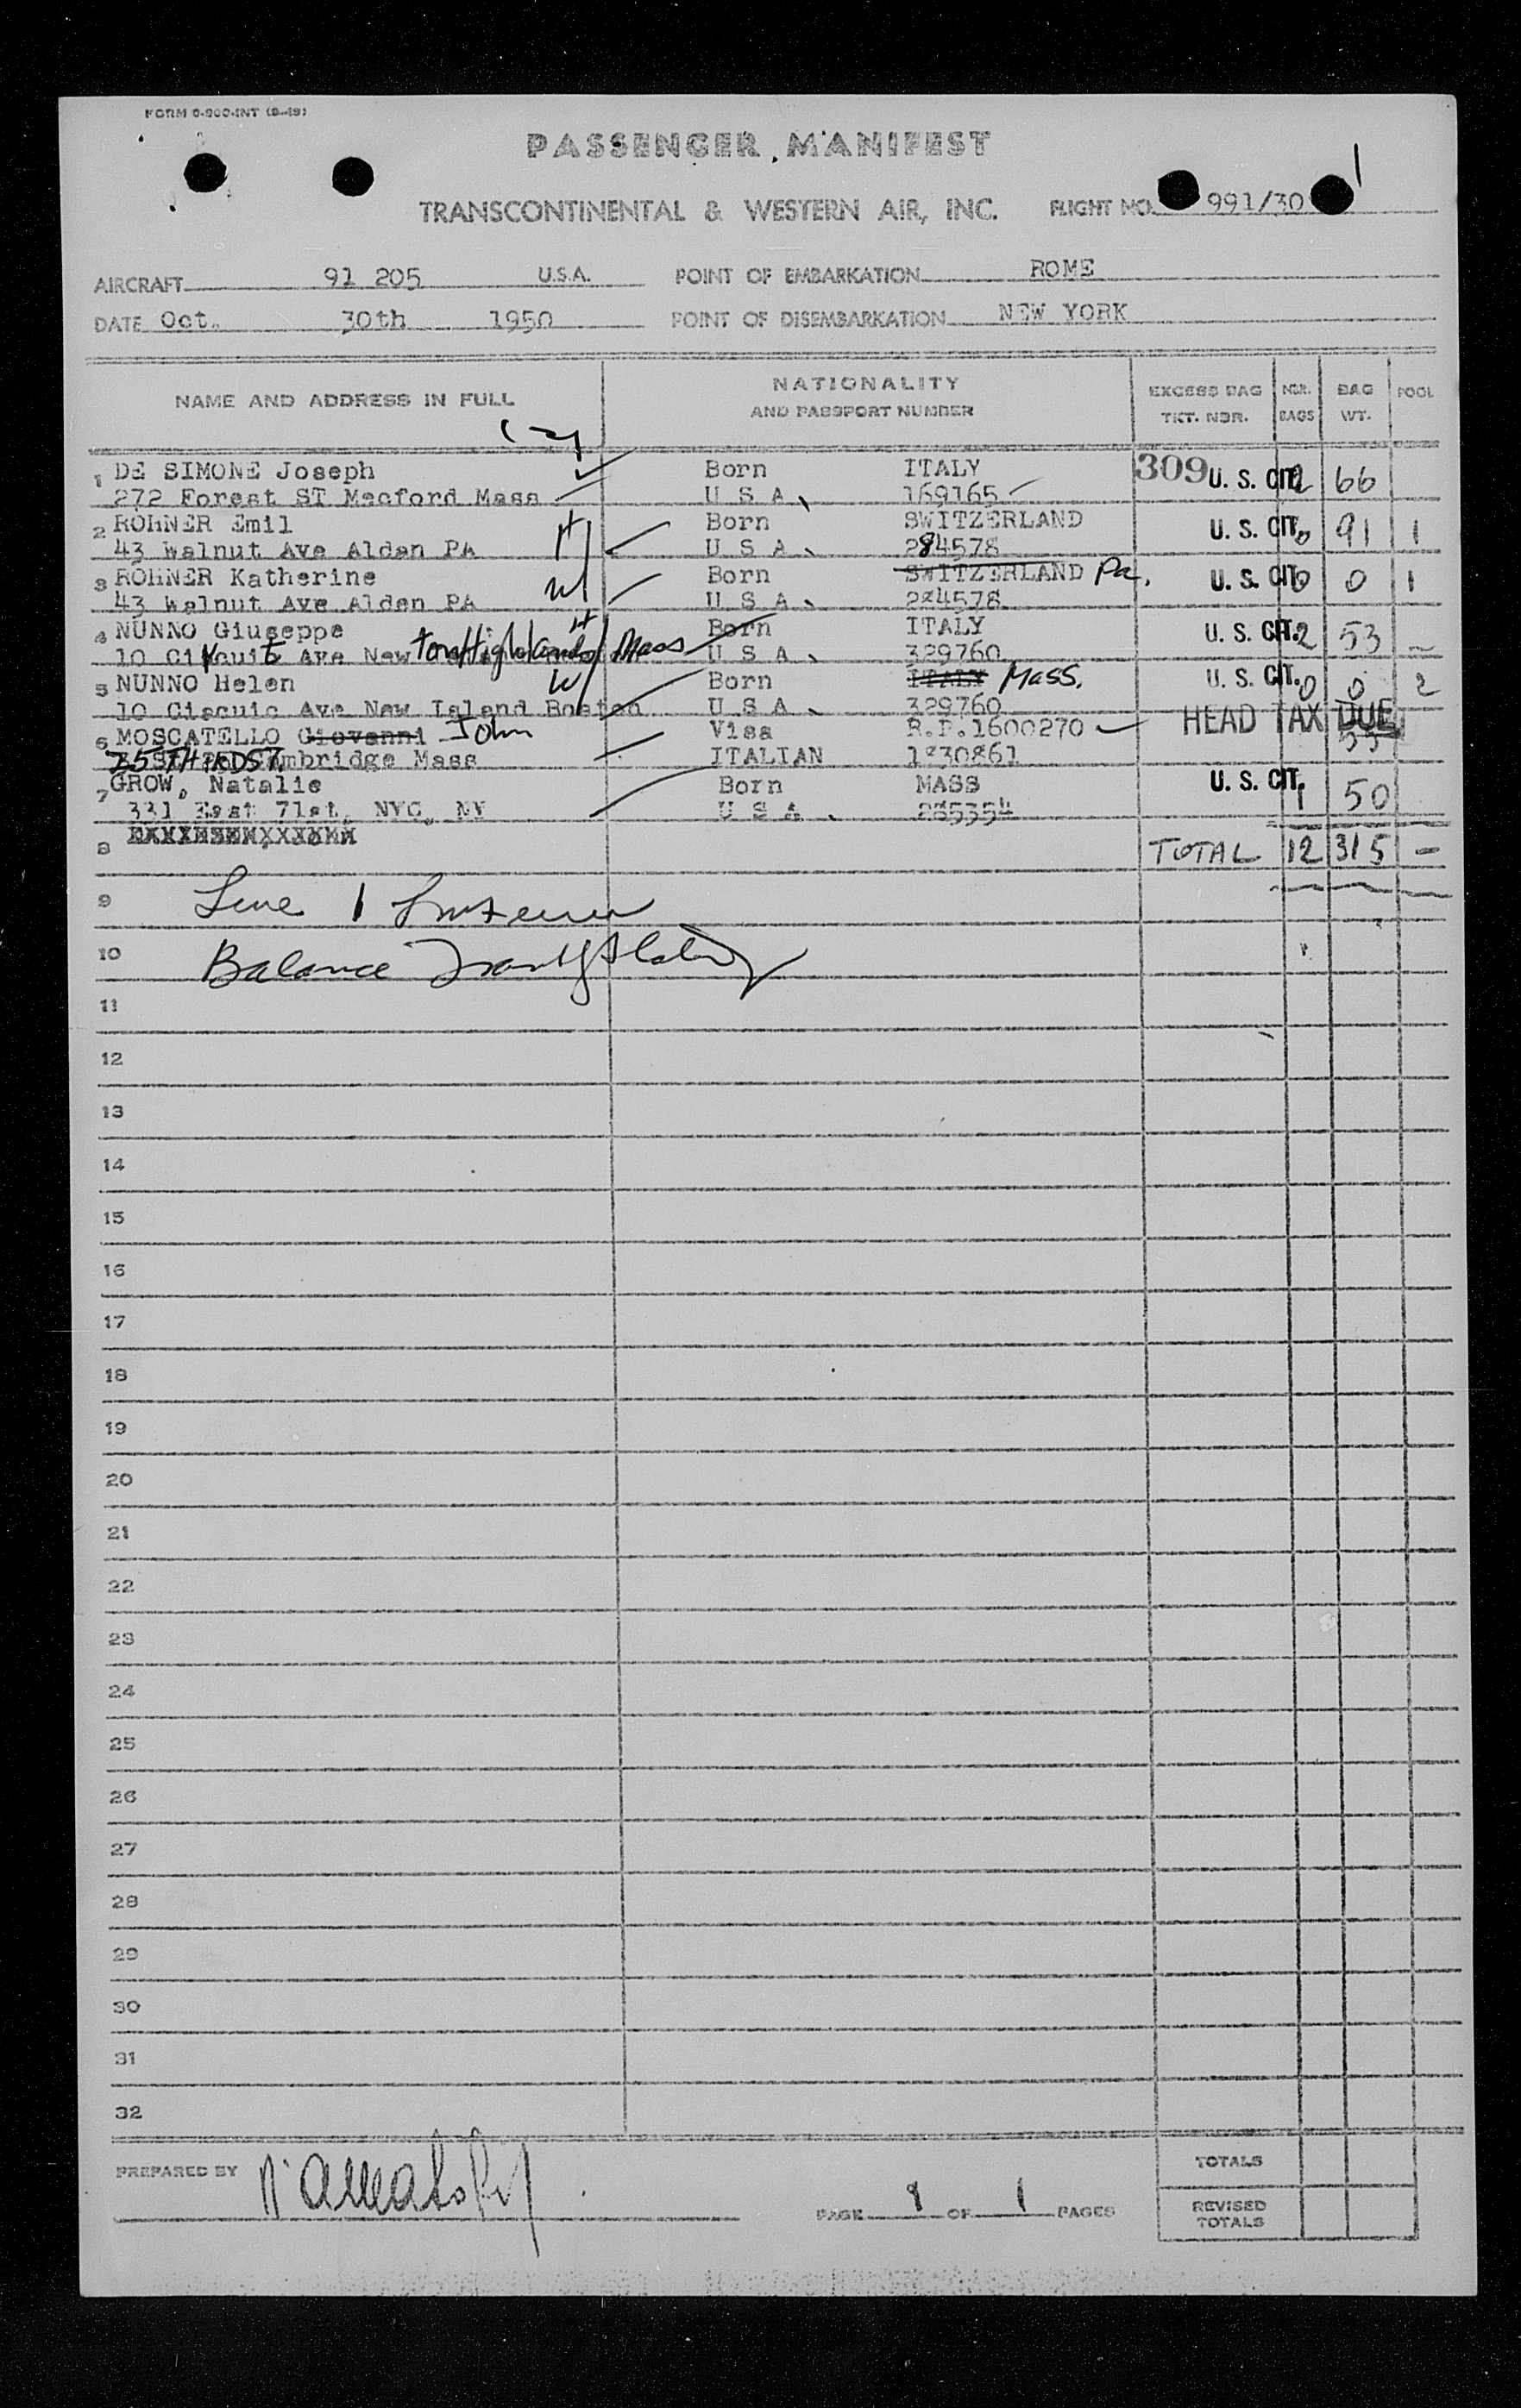 FORM 0-900-INT (8-49)
PASSENGER MANIFEST
TRANSCONTINENTAL & WESTERN AIR, INC. FLIGHT NO. 991/30 1
AIRCRAFT 91 205 U.S.A. POINT OF EMBARKATION ROME
DATE Oct. 30th 1950 POINT OF DISEMBARKATION NEW YORK
NAME AND ADDRESS IN FULL NATIONALITY AND PASSPORT NUMBER EXCESS BAG TKT. NBR. NBR. BAGS BAG WT. POOL
1 DE SIMONE Joseph Born ITALY 309 U. S. CIT. 2 66
272 Forest ST Mecford Mass U S A 169165
2 ROHNER Emil H Born SWITZERLAND U. S. CIT. 91 1
43 Walnut Ave Alden PA U S A 284578
3 ROHNER Katherine W Born SWITZERLAND Pa. U. S. CIT. 0 0 1
43 Walnut Ave Alden PA U S A 284578
4 NUNNO Giuseppe H Born ITALY U. S. CIT. 2 53
10 Circuit Ave Newton Highlands Mass U S A 329760
5 NUNNO Helen W Born ITALY Mass. U. S. CIT. 0 0 2
10 Ciscuic Ave New Island Boston U S A 329760
6 MOSCATELLO Giovanni John Visa R.P.1600270 HEAD TAX DUE
35 THIRD ST Cambridge Mass ITALIAN 1830861 55
7 GROW, Natalie Born MASS U. S. CIT. 1 50
331 East 71st, NYC, NY U S A 285354
8 TOTAL 12 315 -
9 Line 1
10 Balance
11
12
13
14
15
16
17
18
19
20
21
22
23
24
25
26
27
28
29
30
31
32
PREPARED BY
PAGE 1 OF 1 PAGES
TOTALS
REVISED TOTALS